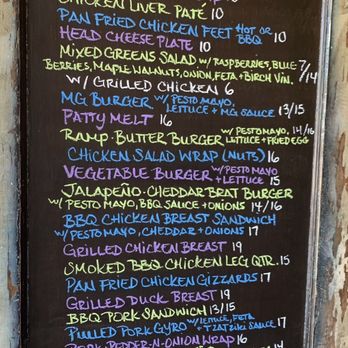 CHICKEN LIVER PATÉ 10
PAN FRIED CHICKEN FEET HOT OR BBQ 10
HEAD CHEESE PLATE 10
MIXED GREENS SALAD W/ RASPBERRIES, BLUE- 7/14
BERRIES, MAPLE WALNUTS, ONION, FETA + BIRCH VIN.
W/ GRILLED CHICKEN 6
MG BURGER W/ PESTO MAYO, LETTUCE + MG SAUCE 13/15
PATTY MELT 16
RAMP-BUTTER BURGER W/ PESTO MAYO, LETTUCE + FRIED EGG 14/16
CHICKEN SALAD WRAP (NUTS) 16
VEGETABLE BURGER W/ PESTO MAYO + LETTUCE 15
JALAPEÑO-CHEDDAR BRAT BURGER
W/ PESTO MAYO, BBQ SAUCE + ONIONS 14/16
BBQ CHICKEN BREAST SANDWICH
W/ PESTO MAYO, CHEDDAR + ONIONS 17
GRILLED CHICKEN BREAST 19
SMOKED BBQ CHICKEN LEG QTR. 15
PAN FRIED CHICKEN GIZZARDS 17
GRILLED DUCK BREAST 19
BBQ PORK SANDWICH 13/15
PULLED PORK GYRO W/ LETTUCE, FETA + TZATZIKI SAUCE 17
PORK-PEPPER-N-ONION WRAP 16